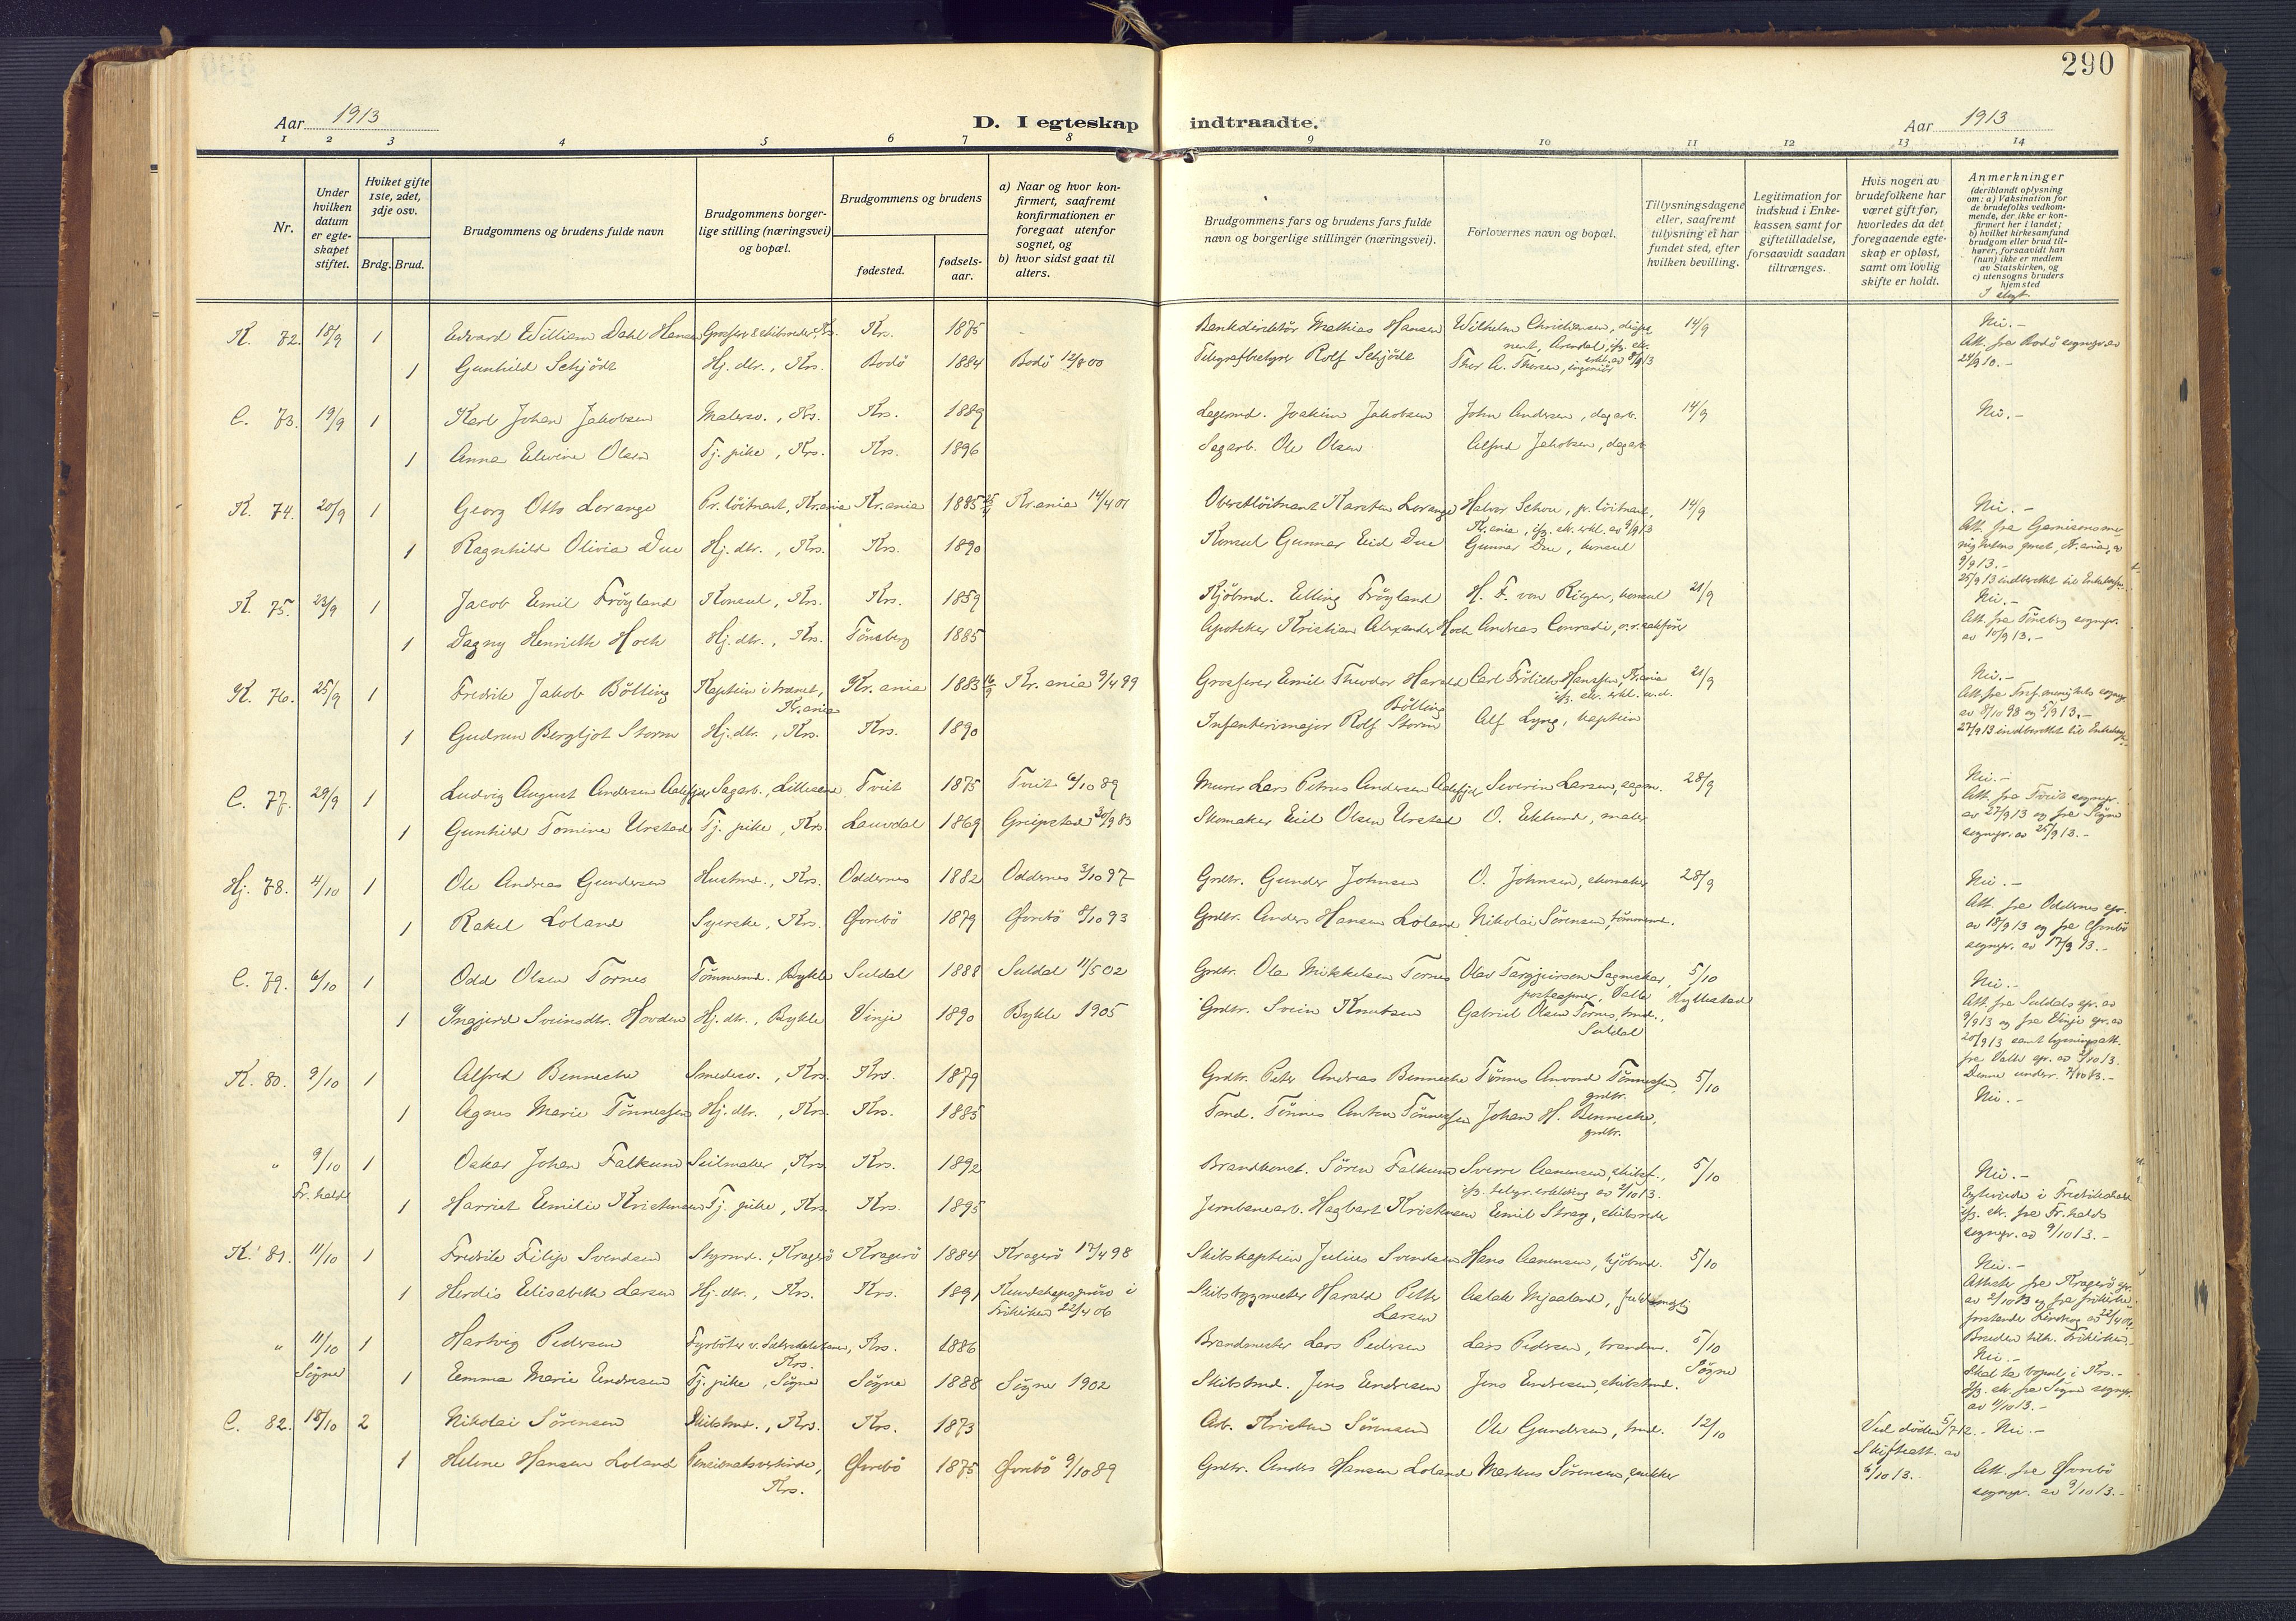 290
Aar 1913
D. I egteskap indtraadte.
Aar 1913
1 2 3 4 5 6 7 8 9 10 11 12 13 14
Nr.
Under hvilken datum er egteskapet stiftet.
Hviket gifte 1ste, 2det, 3dje osv.
Brdg. Brud.
Brudgommens og brudens fulde navn
Brudgommens borgerlige stilling (næringsvei) og bopæl.
Brudgommens og brudens
fødested.
fødselsaar.
a) Naar og hvor konfirmert, saafremt konfirmationen er foregaat utenfor sognet, og
b) hvor sidst gaat til alters.
Brudgommens fars og brudens fars fulde navn og borgerlige stillinger (næringsvei).
Forlovernes navn og bopæl.
Tillysningsdagene eller, saafremt tillysning ei har fundet sted, efter hvilken bevilling.
Legitimation for indskud i Enkekassen samt for giftetilladelse, forsaavidt saadan tiltrænges.
Hvis nogen av brudefolkene har været gift før, hvorledes da det foregaaende egteskap er opløst, samt om lovlig skifte er holdt.
Anmerkninger
(deriblandt oplysning om: a) Vaksination for de brudefolks vedkommende, der ikke er konfirmert her i landet; b) hvilket kirkesamfund brudgom eller brud tilhører, forsaavidt han (hun) ikke er medlem av Statskirken, og c) utensogns bruders hjemsted
I slegt.
K. 72. 18/9 1 Edvard William Dahl Hansen Grosserer & skibsreder, Krs. Krs. 1875 Bankdirektör Mathias Hansen Wilhelm Christensen, disponent, Arendal, ifg. skr. erkl. av 8/9 13 14/9 Nei.-
1 Gunhild Schjöde Hj. dtr., Krs. Bodö 1884 Bodö 12/8 00 Telegrafbestyrer Rolf Schjöde Thor A. Thorsen, ingeniör Att. fra Bodö sognepr. av
C. 73. 19/9 1 Karl Johan Jakobsen Malersv., Krs. Krs. 1889 Lagermd. Joakim Jakobsen John Andersen, dagarb. 14/9 Nei.-
1 Anna Elevine Olsen Tj. pike, Krs. Krs. 1896 Sagarb. Ole Olsen Alfred Jakobsen, dagarb.
K. 74. 20/9 1 Georg Otto Lorange Pr. löitnant, Kr.ania Kr.ania 1885 Kr.ania 14/4 01 Oberstlöitnant Karsten Lorange Halvor Schou, pr. löitnant, Kr.ania, ifg. skr. erkl. av 9/9 13 14/9 Nei.-
1 Ragnhild Olivia Due Hj. dtr., Krs. Krs. 1890 Konsul Gunnar Eid Due Gunnar Due, konsul Att. fra Garnisonsmenighetens prest, Kr.ania, av 9/9 13.-
25/9 13 indberettet til Enkekassen.
K. 75. 23/9 1 Jacob Emil Fröyland Konsul, Krs. Krs. 1859 Kjöbmd. Elling Fröyland H. F. von Riegen, konsul 21/9 Nei.-
1 Dagny Henriette Hoch Hj. dtr., Krs. Tönsberg 1885 Apoteker Kristian Alexander Hoch Andreas Conradi, o.r.sakförer Att. fra Tönsberg sognepr. av 10/9 13.-
K. 76. 25/9 1 Fredrik Jakob Bölling Kaptein i hæren, Kr.ania Kr.ania 1883 Kr.ania 9/4 99 Grosserer Emil Theodor Harald Bölling Carl Frölich Hanssen, Kr.ania ifg. skr. erkl. u.d. 21/9 Nei.-
1 Gudrun Bergljot Storm Hj. dtr., Krs. Krs. 1890 Infanterimajor Rolf Storm Alf Lyng, kaptein Att. fra Trefoldighets sognepr. av 8/10 98 og 5/9 13.-
27/9 13 indberettet til Enkekassen
C. 77. 29/9 1 Ludvig August Andersen Aalefjær Sagarb., Lillesand Tveit 1875 Tveit 6/10 89 Murer Lars Petrus Andersen Aalefjær Severin Larsen, sagm. 28/9 Nei.-
1 Gunhild Tomine Urstad Tj. pike, Krs. Laudal 1869 Greipstad 30/9 83 Skomaker Eiel Olsen Urstad O. Eklund, maler Att. fra Tveit sognepr. av 27/9 13 og fra Sögne sognepr. av 25/9 13.-
Hj. 78. 4/10 1 Ole Andreas Gundersen Hustmd., Krs. Oddernes 1882 Oddernes 3/10 97 Grdbr. Gunder Johnsen O. Johnsen, skomaker 28/9 Nei.-
1 Rakel Loland Syerske, Krs. Øvrebö 1879 Øvrebö 8/10 93 Grdbr. Anders Hansen Loland Nikolai Sörensen, tömmermd. Att. fra Oddernes spr. av 18/9 13 og fra Øvrebö sognepr. av 17/9 13.-
C. 79. 6/10 1 Odd Olsen Tornes Tömmermd. Bykle Suldal 1888 Suldal 11/5 02 Grdbr. Ola Mikkelsen Tornes Olav Targjeirsen Sagneskar, postaapner, Valle 5/10 Hyllestad Nei.-
1 Ingjerd Sveinsdtr. Hovden Hj. dtr., Bykle Vinje 1890 Bykle 1905 Grdbr. Svein Knutsen Gabriel Olsen Tornes, tmd., Suldal Att. fra Suldals spr. av 9/9 13 og fra Vinje spr. av 20/9 13 samt lysningsatt. fra Valle spr. av 5/10 13. Denne underr. 7/10 13.-
K. 80. 9/10 1 Alfred Bennecke Smedesv., Krs. Krs. 1879 Grdbr. Peter Andreas Bennecke Tönnes Amond Tönnessen, grdbr. 5/10 Nei.-
1 Agnes Marie Tönnessen Hj. dtr., Krs. Krs. 1885 Tmd. Tönnes Anton Tönnessen Johan H. Bennecke, grdbr.
" 9/10 Fr.hald 1 Oskar Johan Falkum Seilmaker, Krs. Krs. 1892 Brandkonst. Sören Falkum Sverre Aanensen, skibsf., ifg. telegr. erklæring av 9/10 13. 5/10 Nei.-
1 Harriet Emilie Kristensen Tj. pike, Krs. Krs. 1895 Jernbanearb. Hagbart Kristensen Emil Stray, skibsreder Egteviede i Fredrikshald ifg. skr. fra Fr.halds sognepr. av 9/10 13.-
K. 81. 11/10 1 Fredrik Filip Svendsen Styrmd., Kragerö Kragerö 1884 Kragerö 17/4 98 Skibskaptein Julius Svendsen Hans Aanensen, kjöbmd. 5/10 Nei.-
1 Herdis Elisabeth Larsen Hj. dtr., Krs. Krs. 1891 Kundskapspröve i Frikirken 22/4 06 Skibsbygmester Harald Peter Larsen Aslak Mjaaland, fuldmægtig Attester fra Kragerö spr. av 2/10 13 og fra frikirkeforstander av 22/4 06. Bruden tilh. Frikirken.-
" 11/10 Sögne 1 Hartvig Pedersen Fyrböter v. Setesdalsbanen, Krs. Krs. 1886 Brandmester Lars Pedersen Lars Pedersen, brandm. 5/10 Sögne Nei.-
1 Emma Marie Endresen Tj. pike, Sögne Sögne 1888 Sögne 1902 Skibstmd. Jens Endresen Jens Endresen, skibstmd. Skal ta bopæl i Krs.- Ifg. skr. fra Sögne sognepr. av 11/10 13.-
C. 82. 18/10 2 Nikolai Sörensen Skibstmd., Krs. Krs. 1873 Arb. Kristen Sörensen Ole Gundersen, tmd. 12/10 Ved döden 5/7 12. Skifteatt. av 6/10 13. Nei.-
1 Helene Hansen Loland Pensionatsvertinde, Krs. Øvrebö 1875 Øvrebö 9/10 89 Grdbr. Anders Hansen Loland Markus Sörensen, snekker Att. fra Øvrebö sognepr. av 9/10 13.-